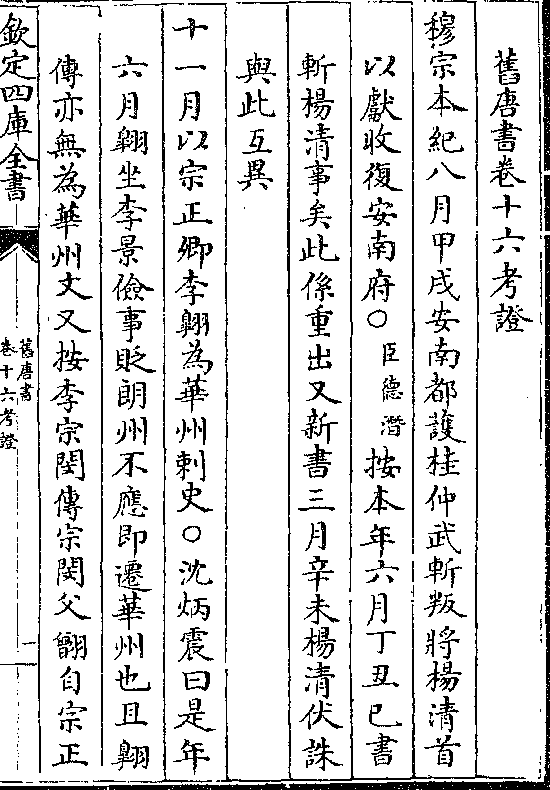 舊唐書卷十六考證
穆宗本紀八月甲戌安南都護桂仲武斬叛將楊清首
以獻收復安南府○臣德潛按本年六月丁丑已書
斬楊清事矣此係重出又新書三月辛未楊清伏誅
與此互異
十一月以宗正卿李翺為華州刺史○沈炳震曰是年
六月翺坐李景儉事貶朗州不應即遷華州也且翺
傳亦無為華州文又按李宗閔傳宗閔父䎖自宗正
欽定四庫全書
舊唐書
卷十六考證
一